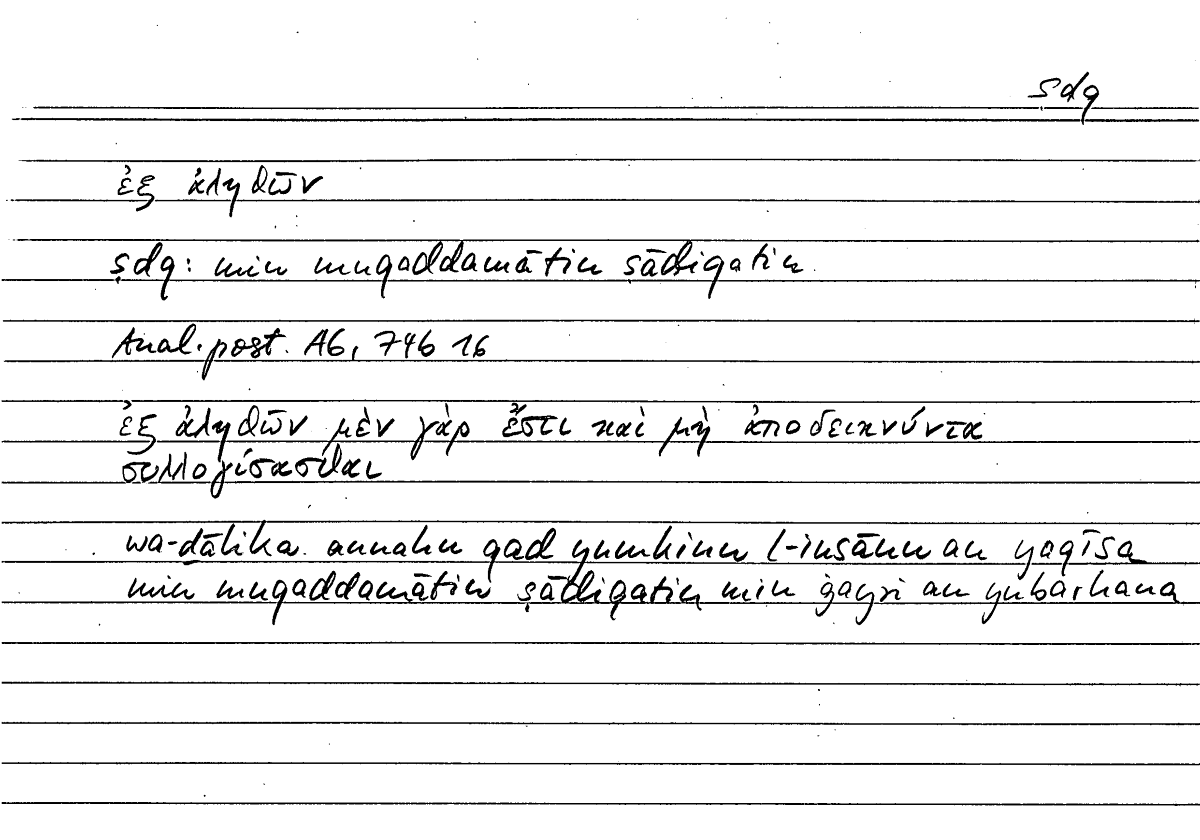 ṣdq
ἐξ ἀληθῶν
ṣdq: min muqaddamātin ṣādiqatin
Anal. post. A6, 74b 16
ἐξ ἀληθῶν μὲν γὰρ ἔστι καὶ μὴ ἀποδεικνύντα
συλλογίσασθαι
wa-ḏālika annahu qad yumkinu l-insānu an yaqīsa
min muqaddamātin ṣādiqatin min ġayri an yubarhana